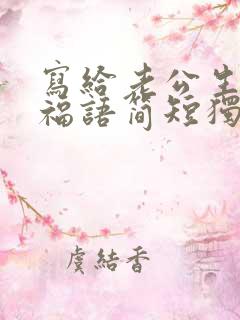 寫給老公生
福語簡短獨
虞結香